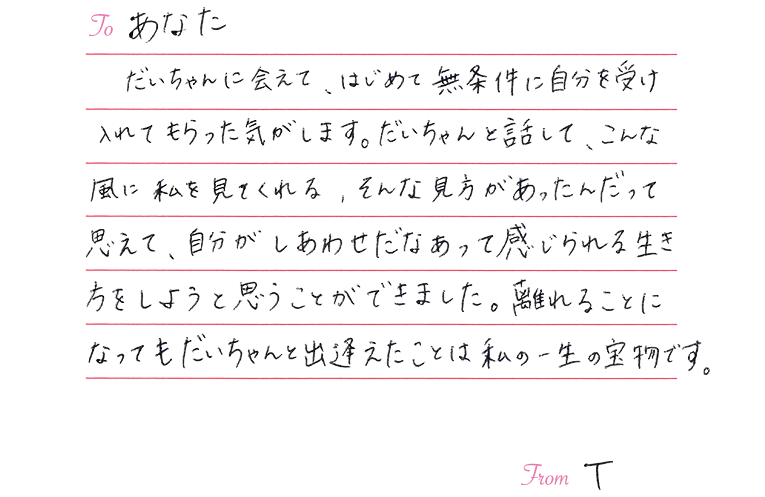 To あなた
だいちゃんに会えて、はじめて無条件に自分を受け
入れてもらった気がします。だいちゃんと話して、こんな
風に私を見てくれる,そんな見方があったんだって
思えて、自分がしあわせだなあって感じられる生き
方をしようと思うことができました。離れることに
なってもだいちゃんと出逢えたことは私の一生の宝物です。
From T